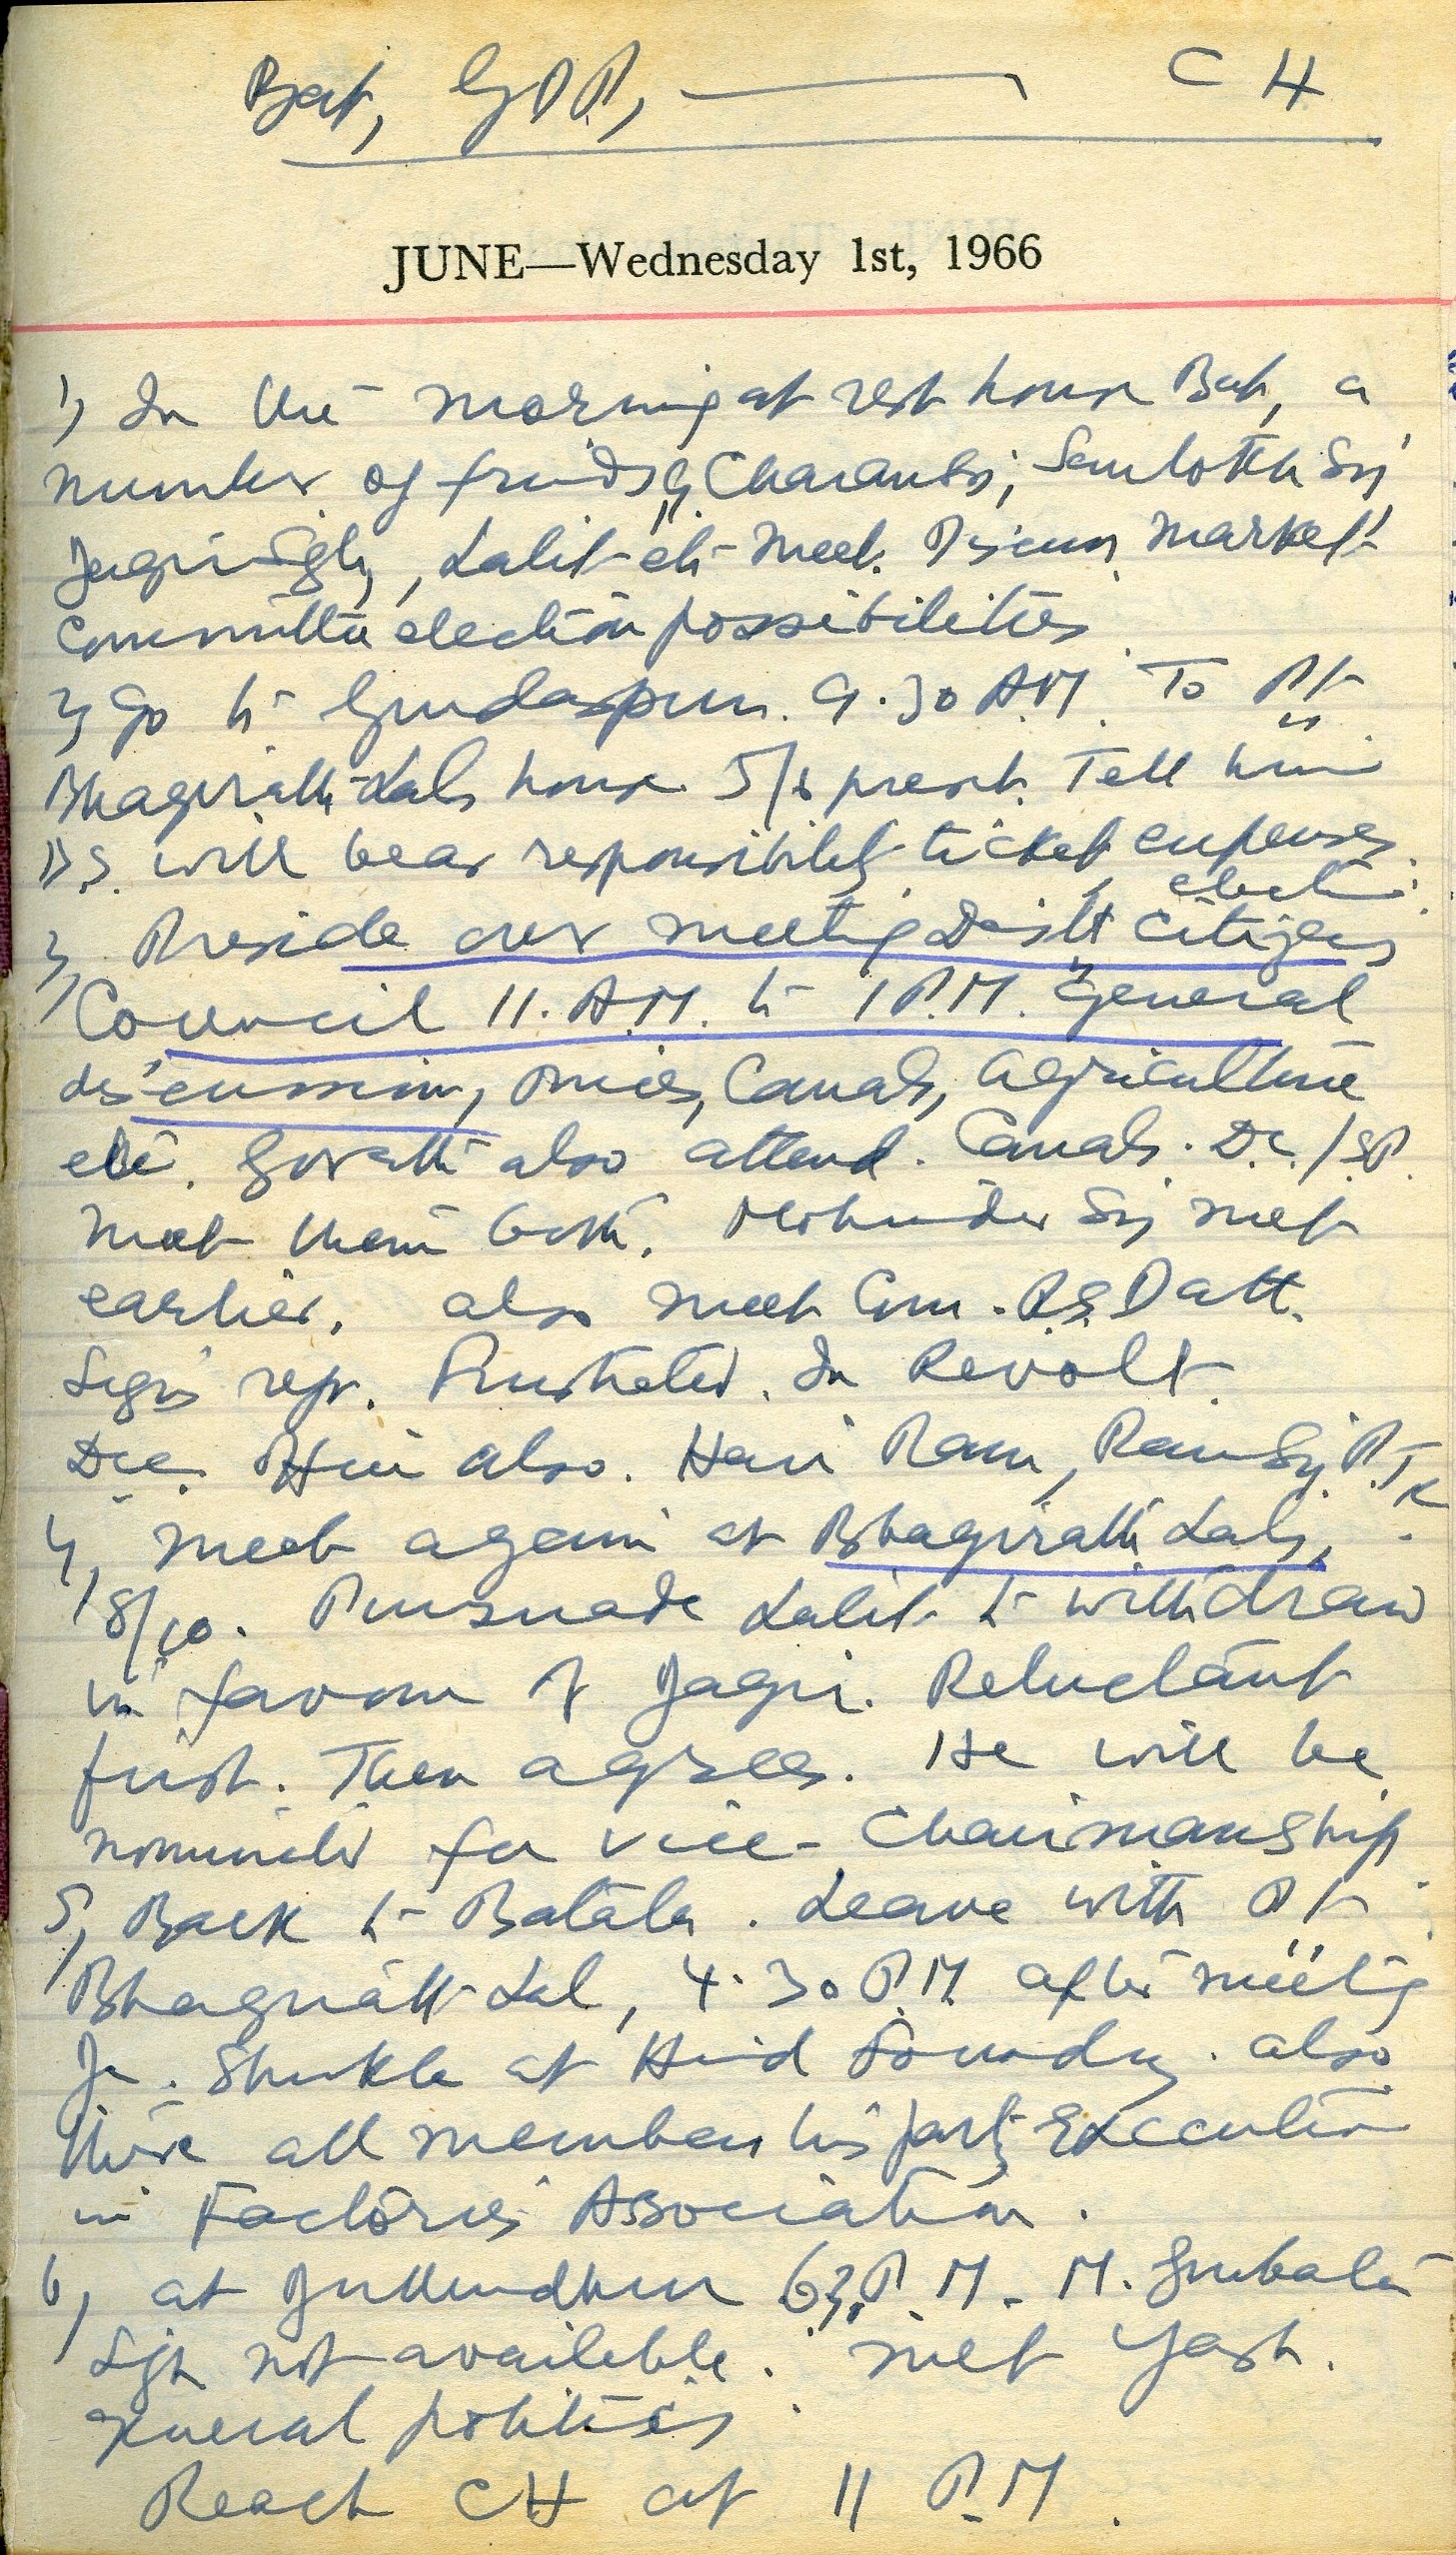 Bat, GDP, — CH
JUNE—Wednesday 1st, 1966
1) In the morning at rest house Bat, a
number of friends, Charan Sij,
Jagir Sigh, Lalit etc meet. Discuss market
committee election possibilities
2) Go to Gurdaspur. 9.30 A.M. To Pt
Bhagirath Lals house. 5/6 present. Tell him
D.S. will bear responsibility ticket, expenses
election.
3) Preside over meeting Distt Citizens
Council 11. A.M. to 1 P.M. General
discussion, prices, Canals, agriculture
etc. also attend. Canals. D.C./S.P.
Meet them both. Mohinder Sij met
earlier. also meet Com. Datt.
repr. Frustrated. In Revolt.
also. Hari Ram, Ram Sij P.TK
4) Meet again at Bhagirath Lals,
18/20. Pursuade Lalit to withdraw
in favour of Jagir. Reluctant
first. Then agrees. He will be
nominated for vice-Chairmanship
5) Back to Batala. Leave with Pt
Bhagirath Lal, 4.30 P.M. after meeting
Shukla at Hind Foundry. also
there all members his party Executive
in Factories Association.
6) at Jullundhur 6 P.M. M. Gurbanta
Sigh not available. met Yash.
general politics.
Reach CH at 11 P.M.